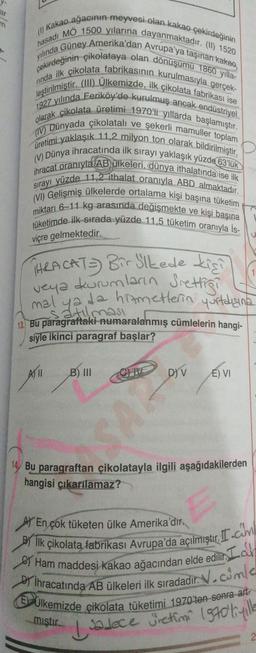 (I) Kakao ağacının meyvesi olan kakao çekirdeğinin
hasadı MÖ 1500 yılarına dayanmaktadır. (II) 1520
yılında Güney Amerika'dan Avrupa'ya taşınan kakao
çekirdeğinin çikolataya olan dönüşümü 1860 yılla-
rında ilk çikolata fabrikasının kurulmasıyla gerçek-
leştirilmiştir. (III) Ülkemizde, ilk çikolata fabrikası ise
1927 yılında Feriköy'de kurulmuş ancak endüstriyel
olarak çikolata üretimi 1970'li yıllarda başlamıştır.
(IV) Dünyada çikolatalı ve şekerli mamuller toplam
üretimi yaklaşık 11,2 milyon ton olarak bildirilmiştir.
(V) Dünya ihracatında ilk sırayı yaklaşık yüzde 63'lük
ihracat oranıyla AB ülkeleri, dünya ithalatında ise ilk
sırayı yüzde 11,2 ithalat oranıyla ABD almaktadır.
(VI) Gelişmiş ülkelerde ortalama kişi başına tüketim
miktarı 6-11 kg arasında değişmekte ve kişi başına
tüketimde ilk sırada yüzde 11,5 tüketim oranıyla İs-
viçre gelmektedir.
İHRACAT => Bir ülkede kişi
veya kurumların ürettiği
mal ya da hizmetlerin yurtdışına
satılması
13. Bu paragraftaki numaralanmış cümlelerin hangi-
siyle ikinci paragraf başlar?
A) II B) III C) IV D) V E) VI
14. Bu paragraftan çikolatayla ilgili aşağıdakilerden
hangisi çıkarılamaz?
A) En çok tüketen ülke Amerika'dır.
B) İlk çikolata fabrikası Avrupa'da açılmıştır. II. cüml
C) Ham maddesi kakao ağacından elde edilir. I. cü
D) İhracatında AB ülkeleri ilk sıradadır. V. cümle
E) Ülkemizde çikolata tüketimi 1970'ten sonra art-
mıştır. sadece üretimi 1970'li yılla